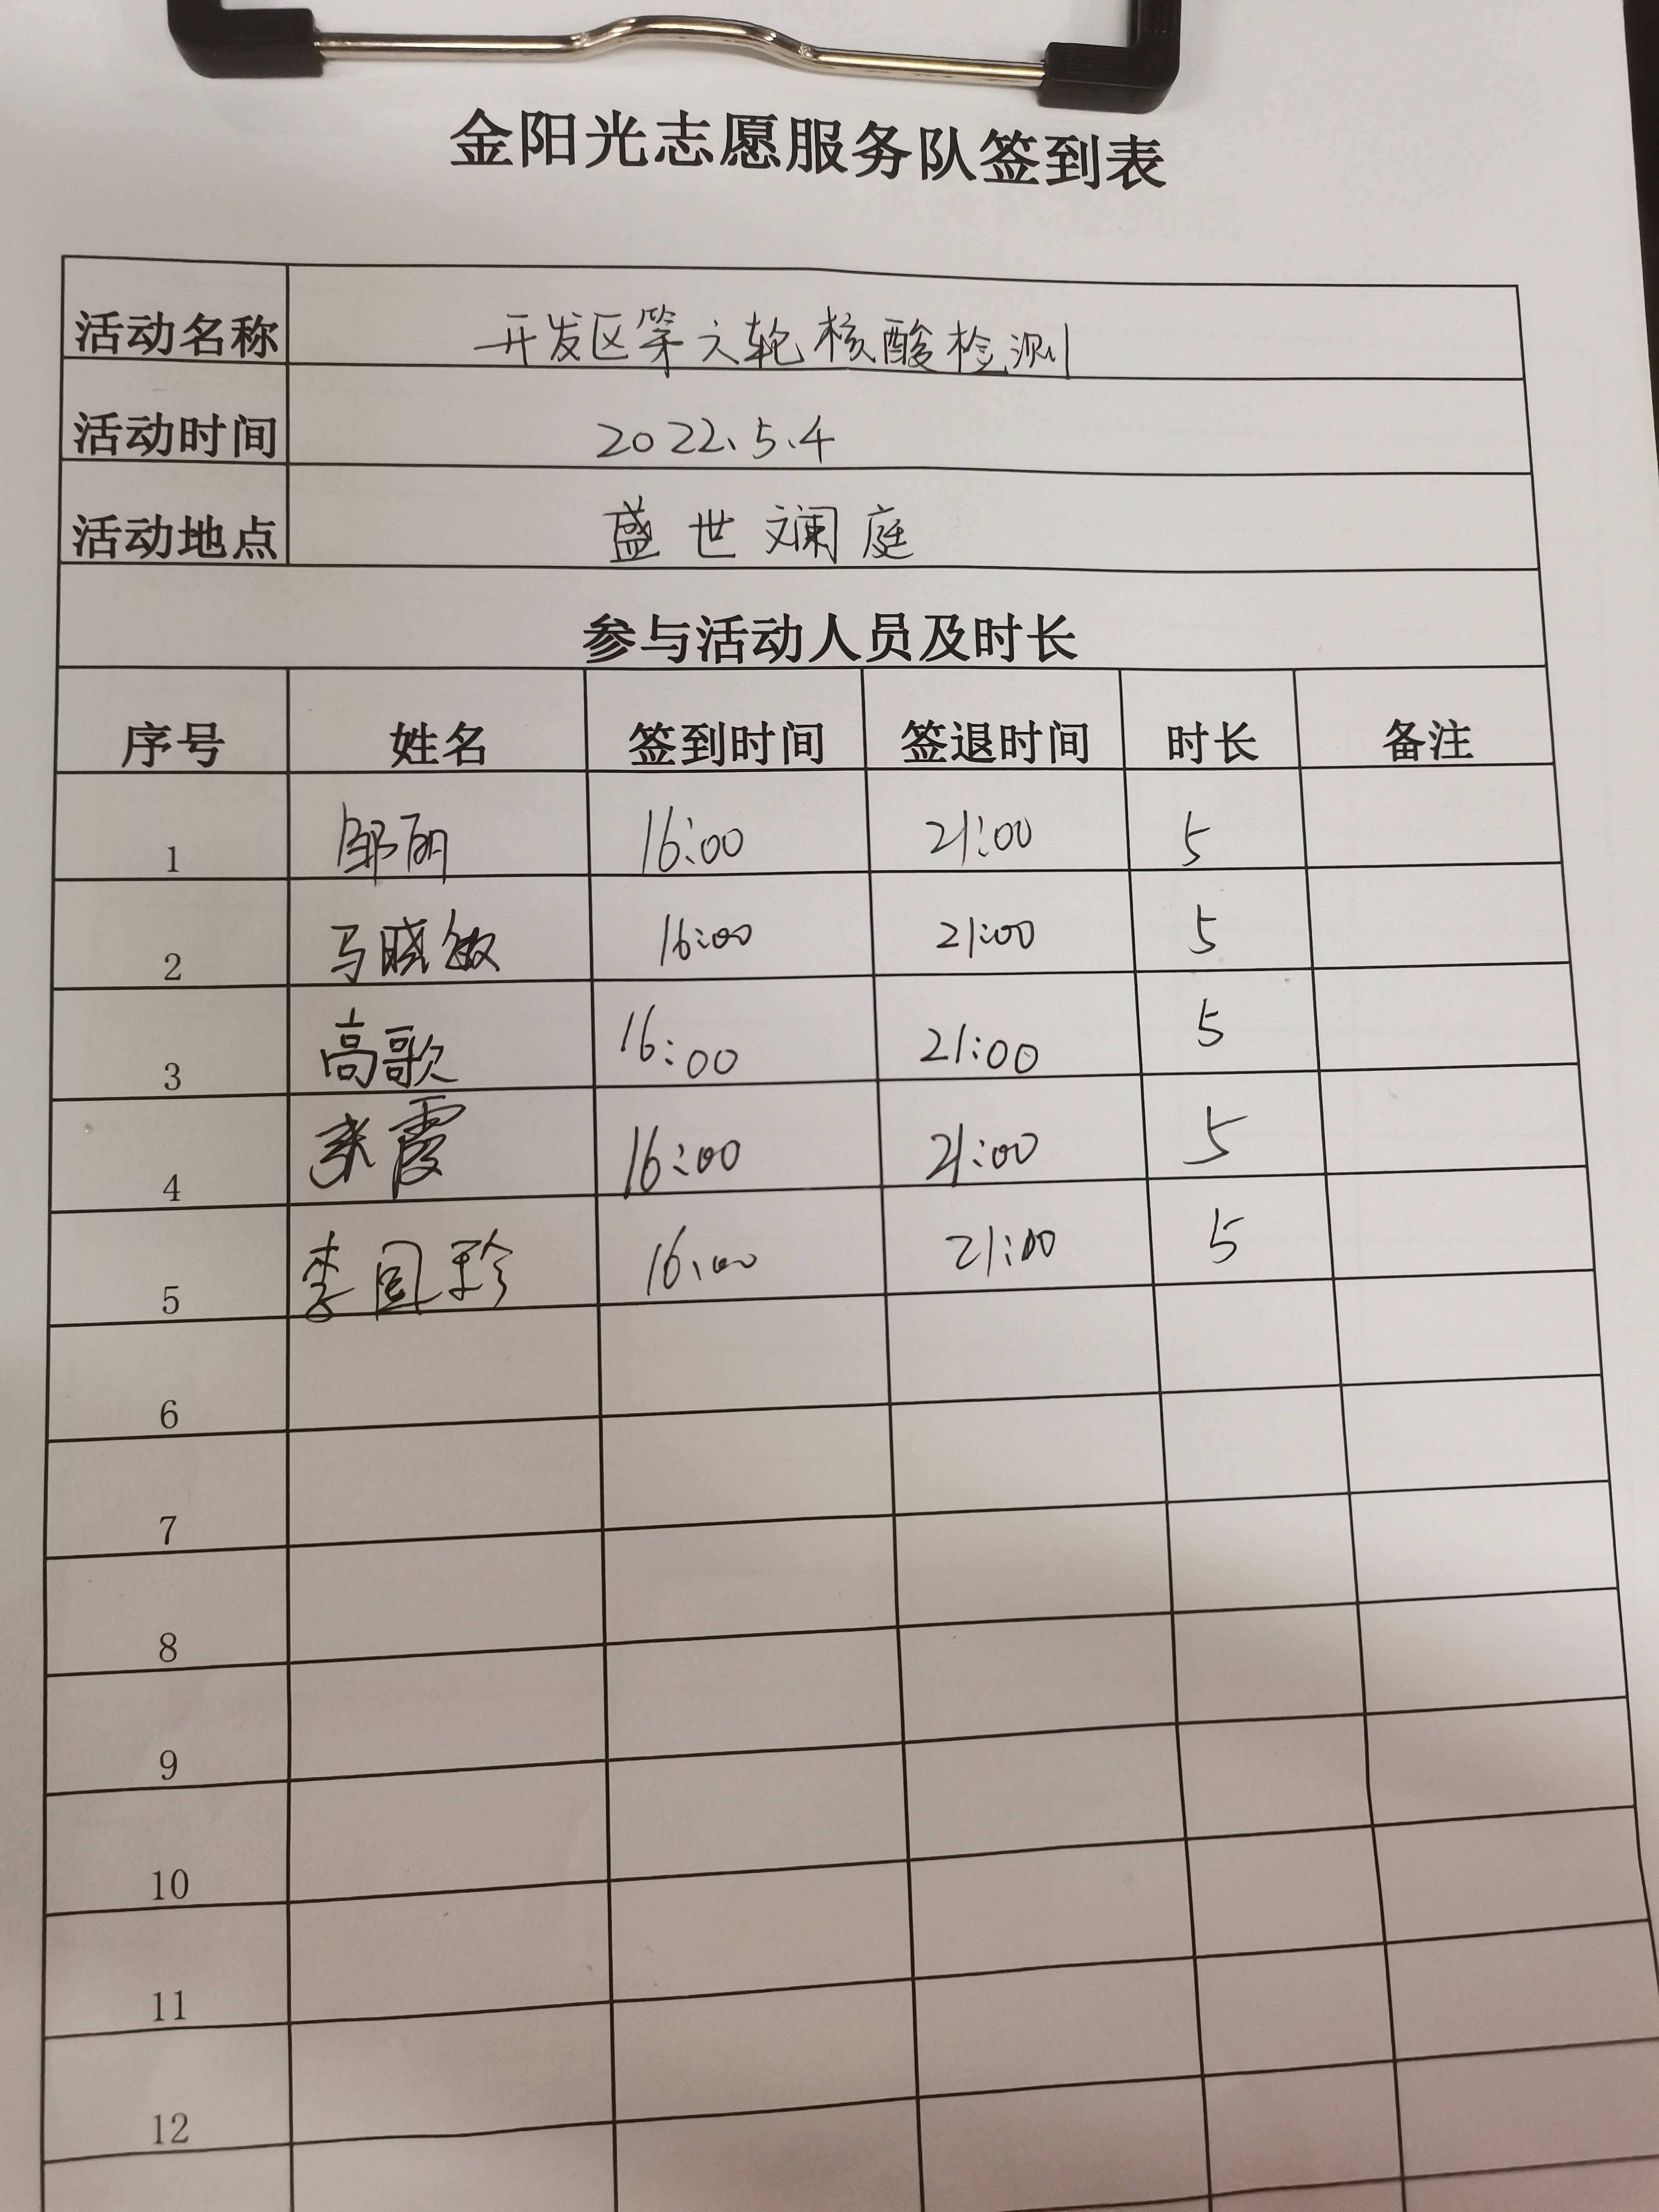 金阳光志愿服务队签到表
活动名称 开发区第六轮核酸检测
活动时间 2022.5.4
活动地点 盛世斓庭
参与活动人员及时长
序号 姓名 签到时间 签退时间 时长 备注
1 邹丽 16:00 21:00 5
2 马晓敏 16:00 21:00 5
3 高歌 16:00 21:00 5
4 霞 16:00 21:00 5
5 李凤珍 16:00 21:00 5
6
7
8
9
10
11
12